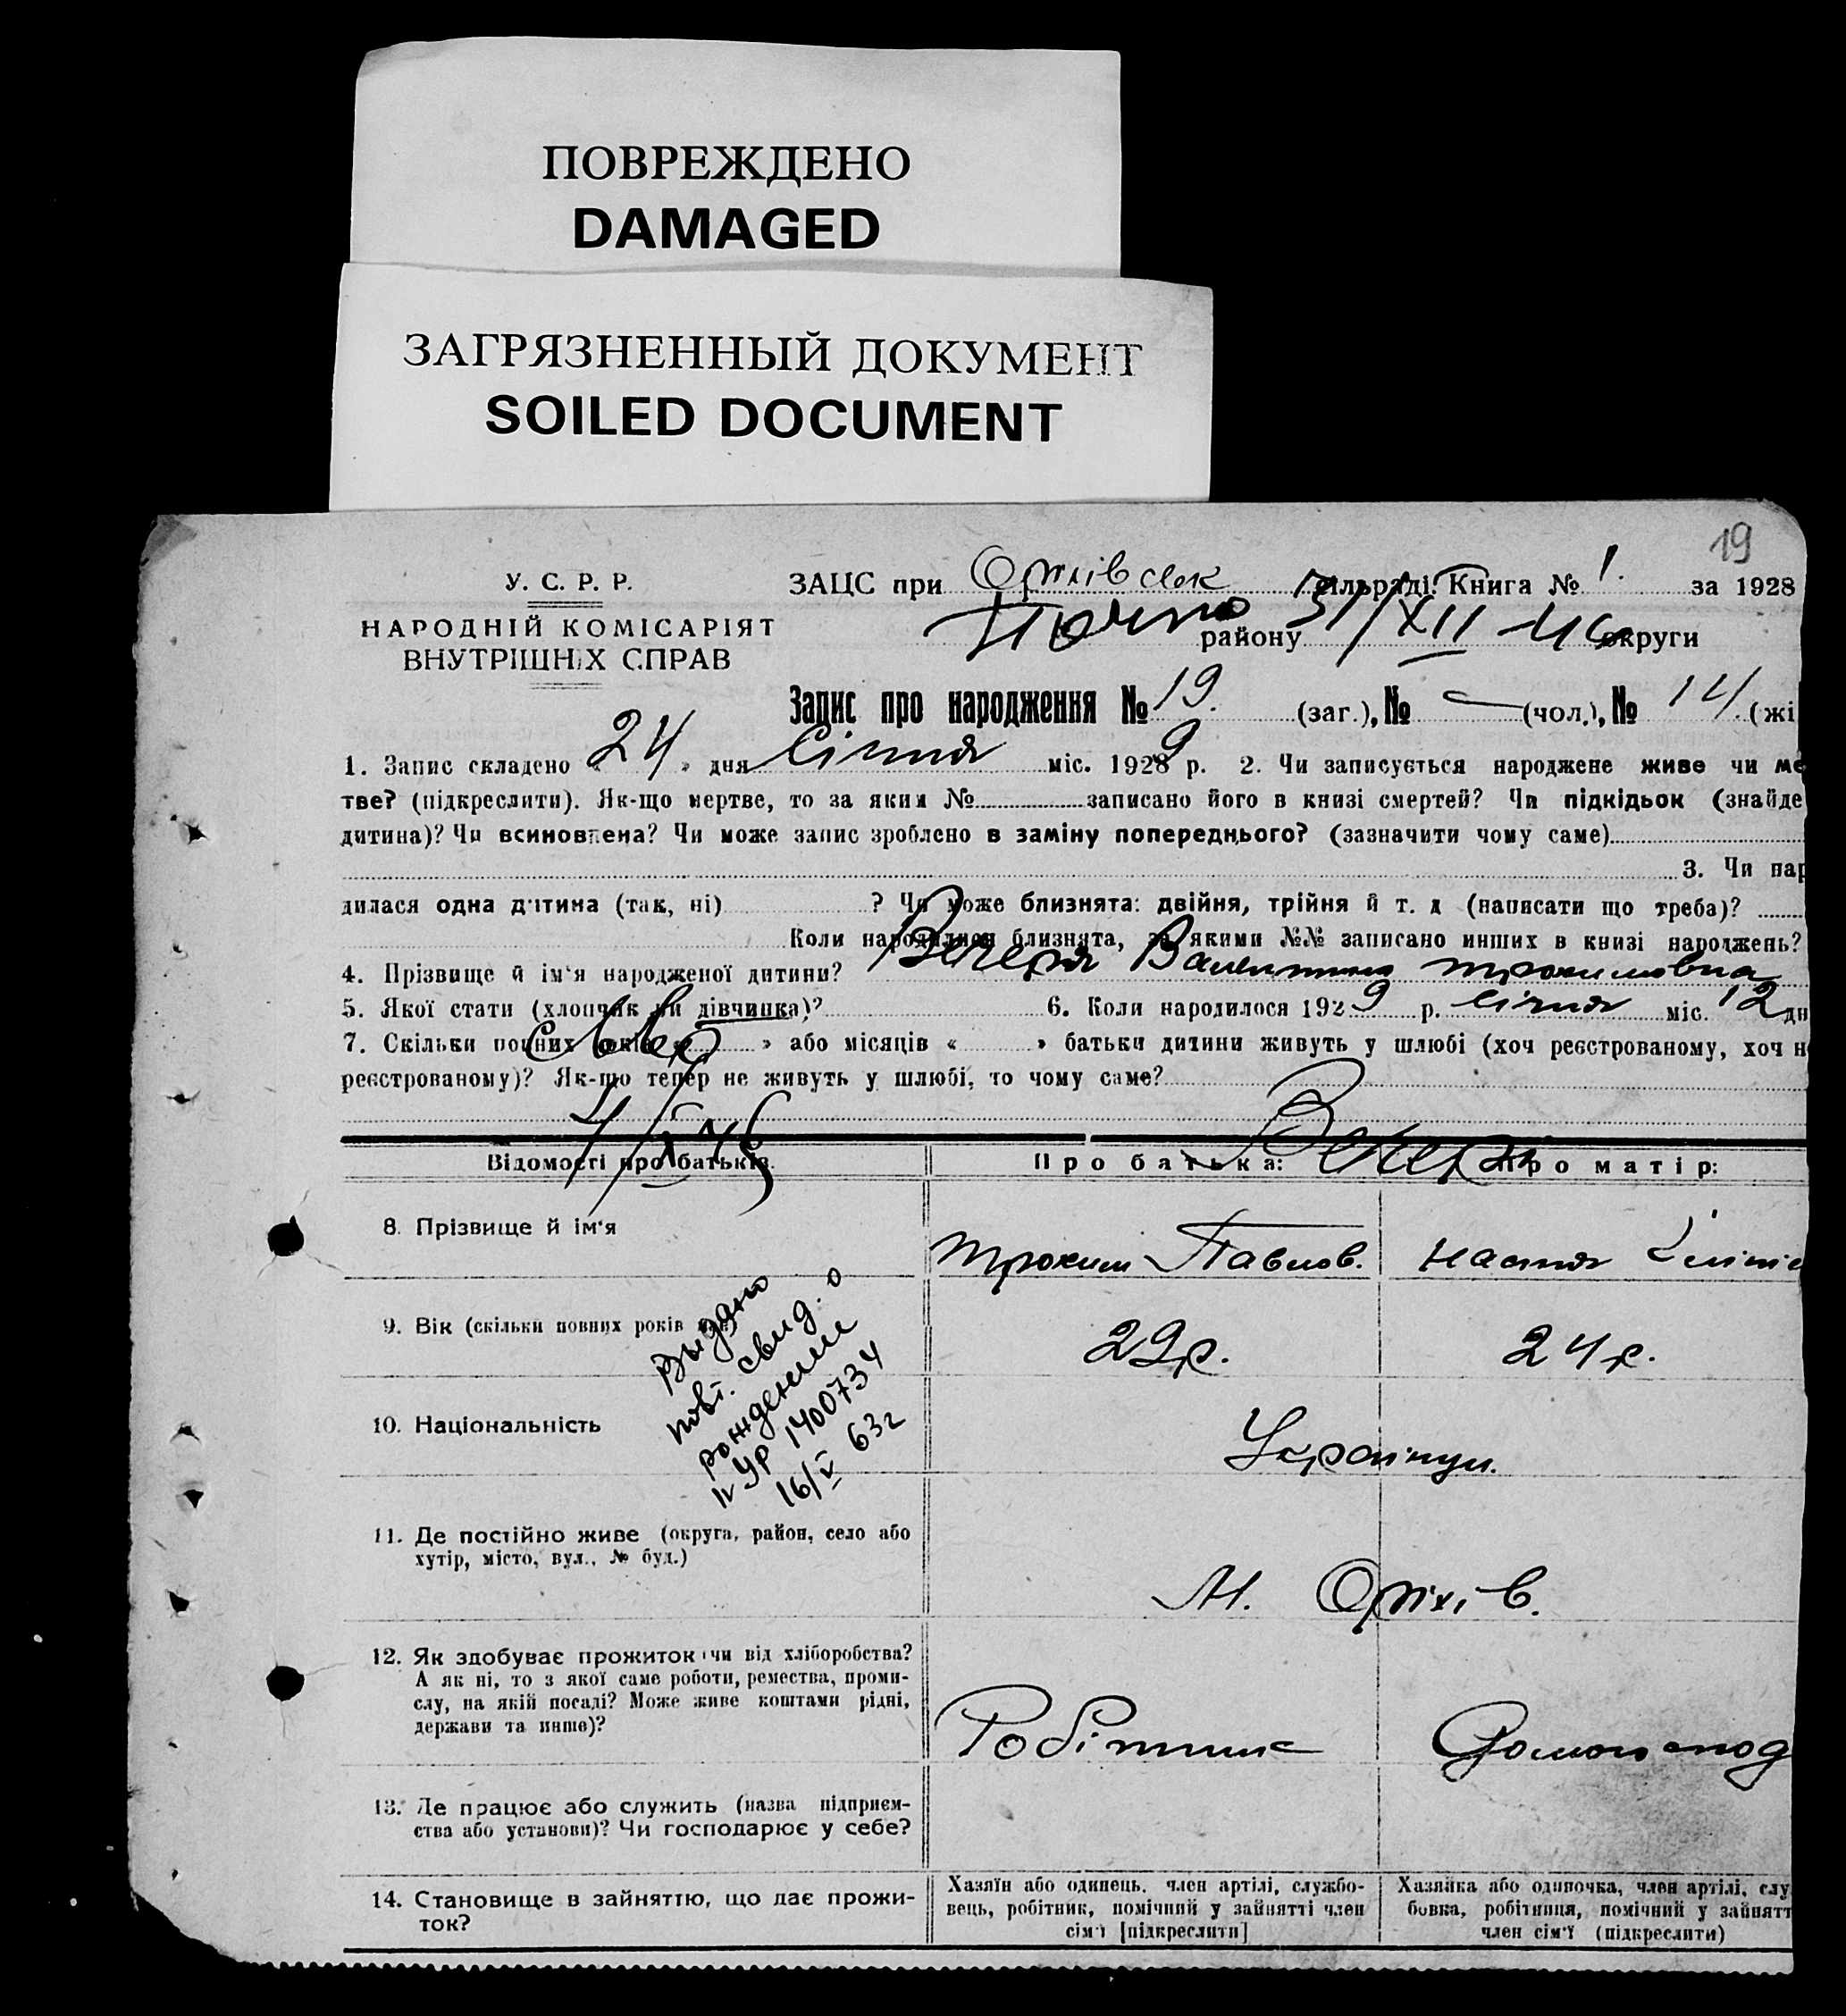 ПОВРЕЖДЕНО
DAMAGED
ЗАГРЯЗНЕННЫЙ ДОКУМЕНТ
SOILED DOCUMENT
19
У. С. Р. Р.
НАРОДНІЙ КОМІСАРІЯТ
ВНУТРІШНІХ СПРАВ
ЗАЦС при Оріхівськ сільраді. Книга № 1. за 1928
району 31/XII 46 округи
Запис про народження № 19. (заг.), № — (чол.), № 14 (жі
1. Запис складено « 24 » дня Січня міс. 1929 р. 2. Чи записується народжене живе чи ме
тве? (підкреслити). Як-що мертве, то за яким № записано його в книзі смертей? Чи підкідьок (знайде
дитина)? Чи всиновлена? Чи може запис зроблено в заміну попереднього? (зазначити чому саме)
3. Чи нар
дилася одна дитина (так, ні) ? Чи може близнята: двійня, трійня й т. д (написати що треба)?
Коли народилися близнята, за якими №№ записано инших в книзі народжень?
4. Прізвище й ім'я народженої дитини? Вечеря Валентина Трохимовна
5. Якої стати (хлопчик чи дівчинка)? 6. Коли народилося 1929 р. січня міс. 12 дн
7. Скільки повних років « » або місяців « » батьки дитини живуть у шлюбі (хоч реєстрованому, хоч н
реєстрованому)? Як-що тепер не живуть у шлюбі, то чому саме?
Відомості про батьків. Про батька: Вечеря Про матір:
8. Прізвище й ім'я Трохим Павлов. Настя
9. Вік (скільки повних років має) 29 р. 24 р.
Выдано
повт. свид. о
рождении
IV УР 1400734
16/V 63г
10. Національність Українци.
11. Де постійно живе (округа, район, село або
хутір, місто, вул., № буд.)
М. Оріхів.
12. Як здобуває прожиток: чи від хліборобства?
А як ні, то з якої саме роботи, ремества, проми-
слу, на якій посаді? Може живе коштами рідні,
держави та инше)?
Робітник Домогоспод
13. Де працює або служить (назва підприєм-
ства або установи)? Чи господарює у себе?
14. Становище в зайняттю, що дає прожи-
ток?
Хазяїн або одинець, член артілі, службо-
вець, робітник, помічний у зайнятті член
сім'ї [підкреслити]
Хазяйка або одиночка, член артілі, слу
бовка, робітниця, помічний у зайнятт
член сім'ї (підкреслити)